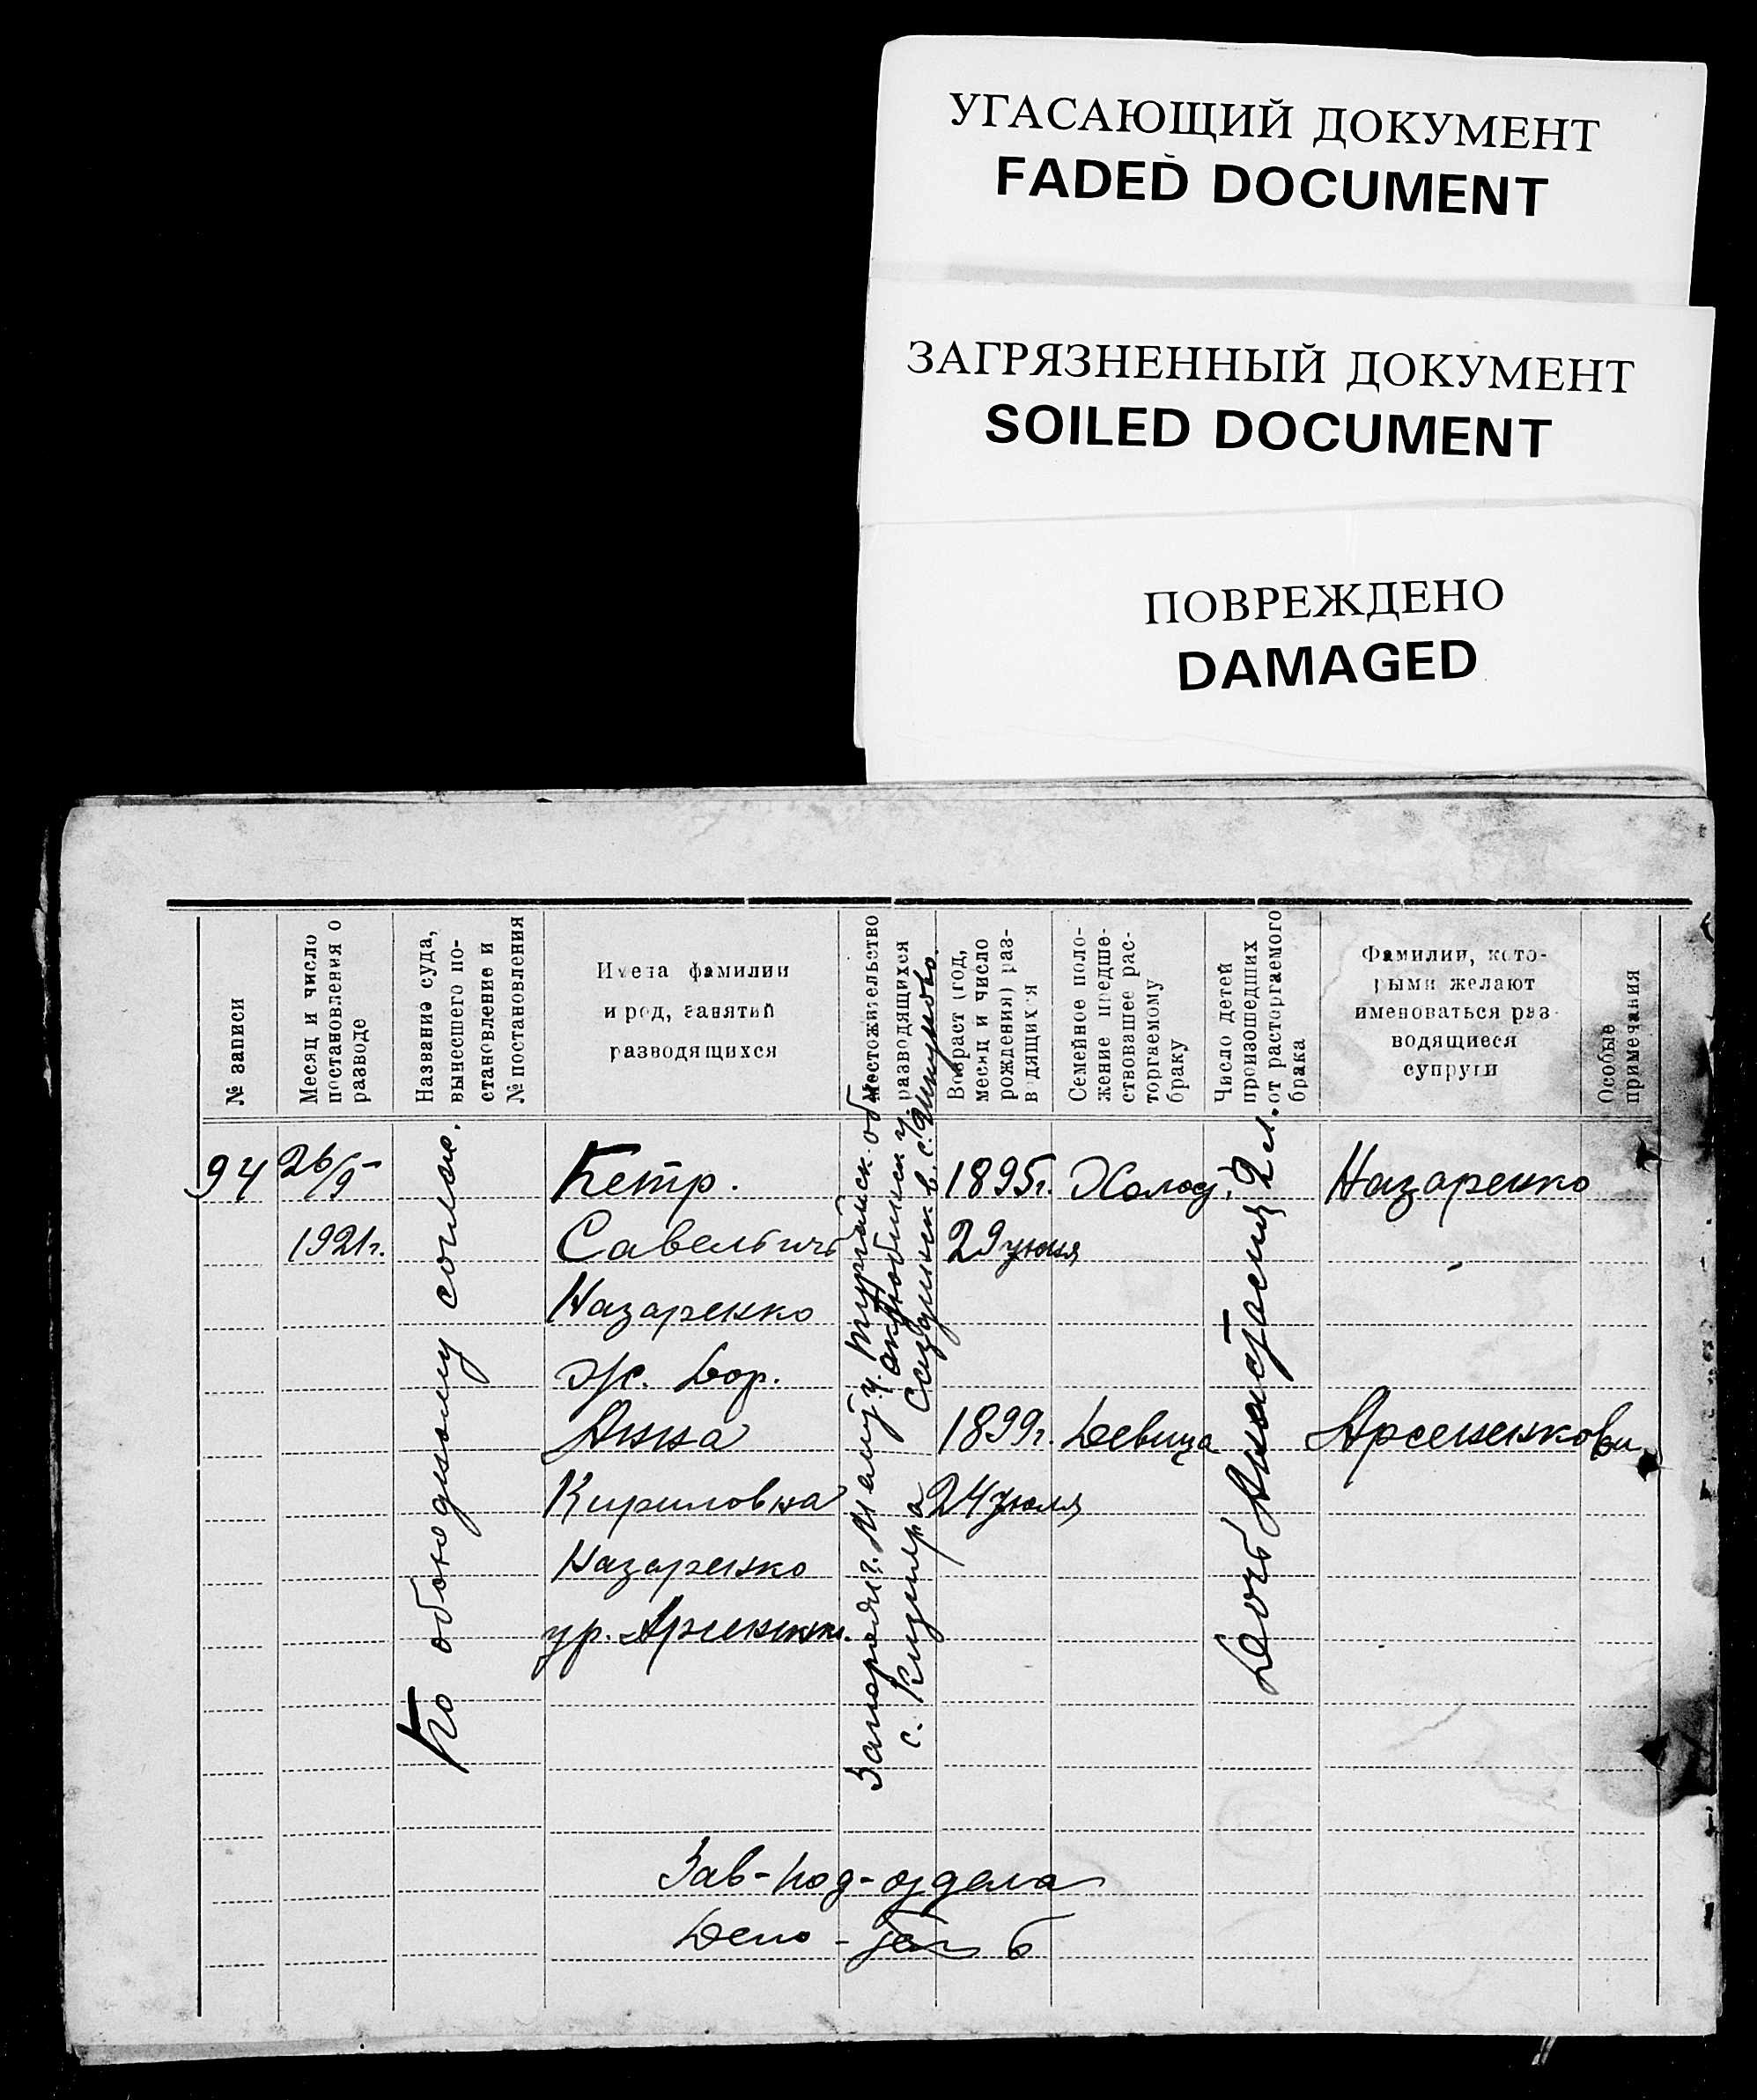 УГАСАЮЩИЙ ДОКУМЕНТ
FADED DOCUMENT
ЗАГРЯЗНЕННЫЙ ДОКУМЕНТ
SOILED DOCUMENT
ПОВРЕЖДЕНО
DAMAGED
№ записи
Месяц и число
постановления о
разводе
Название суда,
вынесшего по-
становление и
№ постановления
Имена фамилии
и род, занятий
разводящихся
Местожительство
разводящихся
Возраст (год,
месяц и число
рождения) раз-
водящихся
Семейное поло-
жение предше-
ствовавшее рас-
торгаемому
браку
Число детей
происшедших
от расторгаемого
брака
Фамилии, кото-
рыми желают
именоваться раз-
водящиеся
супруги
Особые
примечания
94
26/9
1921г.
По обоюдному соглас.
Петр.
Савельичъ
Назаренко
Анна
Кириловна
Назаренко
ур.
с. Кизияра
1895г.
29 июня
1899г.
24 июля
Холост.
Девица
Дочь Анастасия 2 л.
Назаренко
Зав-под-отдела